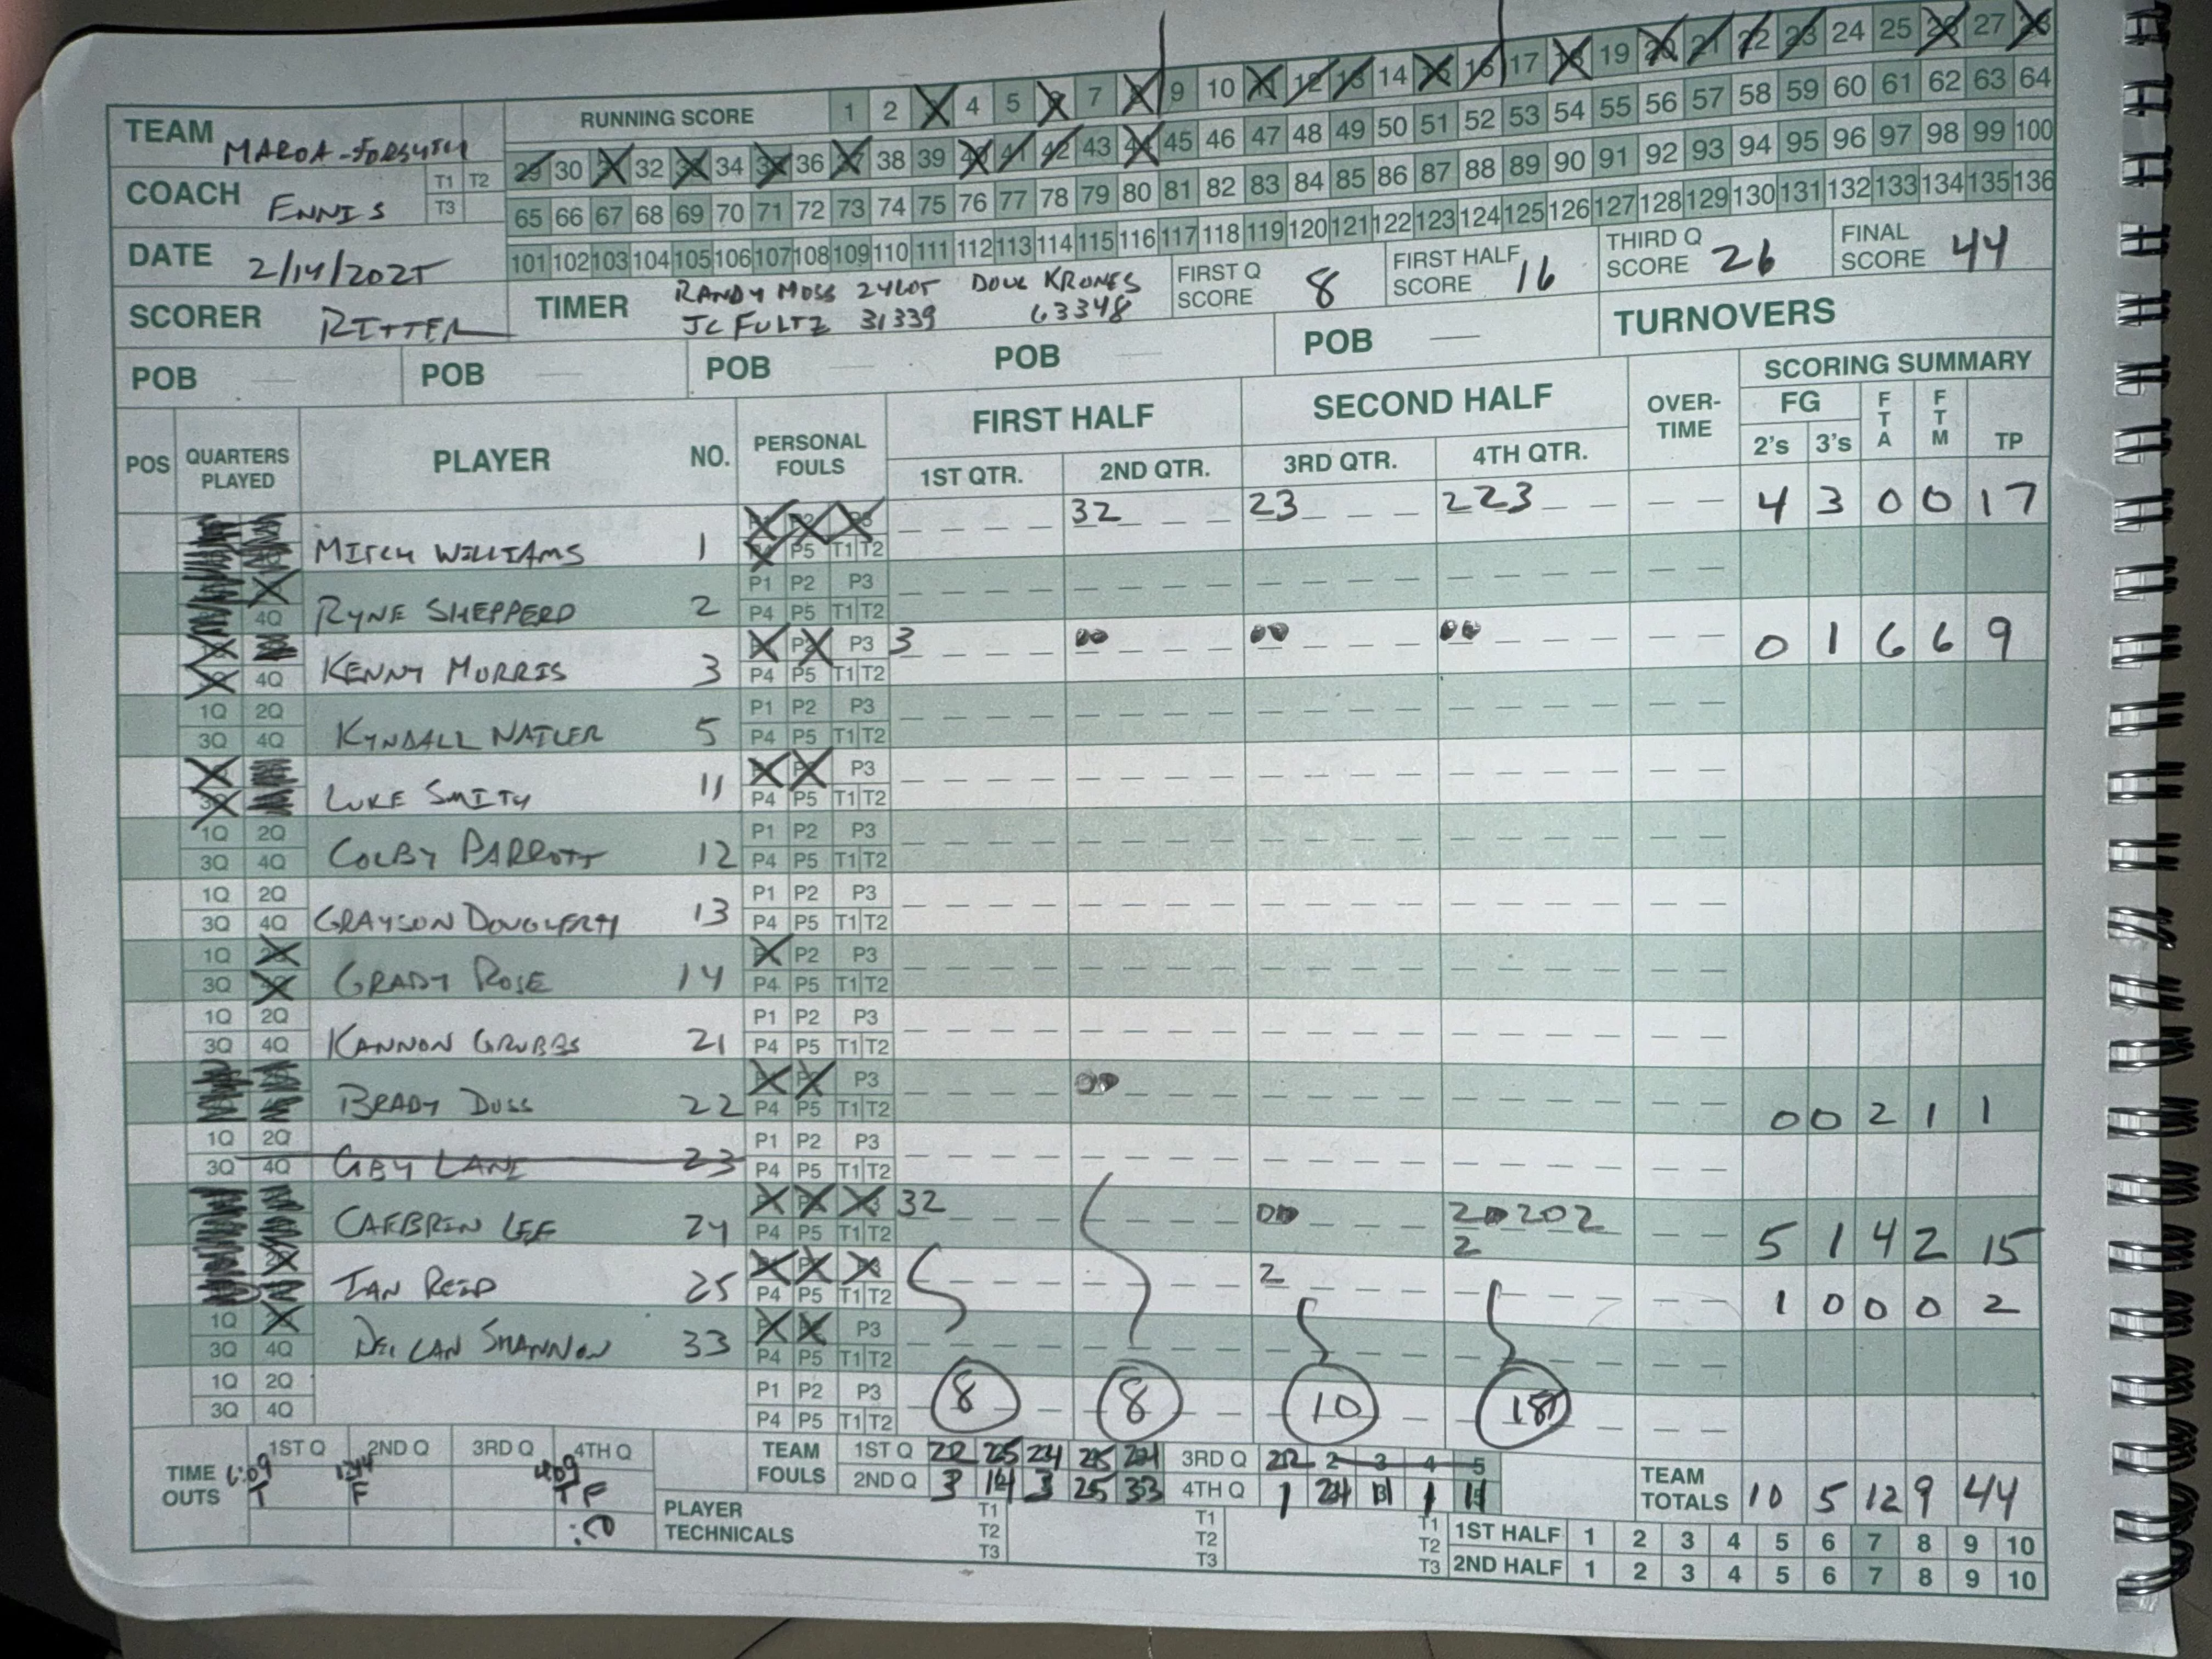 RUNNING SCORE 1 2 3 4 5 6 7 8 9 10 11 12 13 14 15 16 17 18 19 20 21 22 23 24 25 26 27 28
TEAM MAROA-FORSYTH
29 30 31 32 33 34 35 36 37 38 39 40 41 42 43 44 45 46 47 48 49 50 51 52 53 54 55 56 57 58 59 60 61 62 63 64
COACH ENNIS T1 T2 T3
65 66 67 68 69 70 71 72 73 74 75 76 77 78 79 80 81 82 83 84 85 86 87 88 89 90 91 92 93 94 95 96 97 98 99 100
101 102 103 104 105 106 107 108 109 110 111 112 113 114 115 116 117 118 119 120 121 122 123 124 125 126 127 128 129 130 131 132 133 134 135 136
DATE 2/14/2025
SCORER RITTER
TIMER RANDY MOSS 24605 DOUG KRONES
JC FULTZ 31339 63348
FIRST Q SCORE 8
FIRST HALF SCORE 16
THIRD Q SCORE 26
FINAL SCORE 44
POB — POB — POB POB — POB —
TURNOVERS
SCORING SUMMARY
POS QUARTERS PLAYED PLAYER NO. PERSONAL FOULS FIRST HALF SECOND HALF OVER-TIME FG FTA FTM TP
1ST QTR. 2ND QTR. 3RD QTR. 4TH QTR. 2's 3's
MITCH WILLIAMS 1 P5 T1 T2 32 23 223 4 3 0 0 17
4Q RYNE SHEPPERD 2 P1 P2 P3 P4 P5 T1 T2
4Q KENNY MORRIS 3 P3 P4 P5 T1 T2 3 00 00 00 0 1 6 6 9
1Q 2Q 3Q 4Q KYNDALL NAILER 5 P1 P2 P3 P4 P5 T1 T2
LUKE SMITH 11 P3 P4 P5 T1 T2
1Q 2Q 3Q 4Q COLBY PARROTT 12 P1 P2 P3 P4 P5 T1 T2
1Q 2Q 3Q 4Q GRAYSON DOUGHERTY 13 P1 P2 P3 P4 P5 T1 T2
1Q 3Q GRADY ROSE 14 P2 P3 P4 P5 T1 T2
1Q 2Q 3Q 4Q KANNON GRUBBS 21 P1 P2 P3 P4 P5 T1 T2
BRADY DUSS 22 P3 P4 P5 T1 T2 00 0 0 2 1 1
1Q 2Q 3Q 4Q LANE 23 P1 P2 P3 P4 P5 T1 T2
CAEBRIN LEE 24 P4 P5 T1 T2 32 00 20202 2 5 1 4 2 15
IAN REID 25 P4 P5 T1 T2 2 1 0 0 0 2
1Q 3Q 4Q DECLAN SHANNON 33 P3 P4 P5 T1 T2
1Q 2Q 3Q 4Q P1 P2 P3 P4 P5 T1 T2 8 8 10 18
TIME OUTS 1ST Q 2ND Q 3RD Q 4TH Q
6:09 T F 4:09 T F :00
TEAM FOULS 1ST Q 22 25 24 25 24 3RD Q 22 2 3 4 5
2ND Q 3 14 3 25 33 4TH Q 1 24 1 1 11
TEAM TOTALS 10 5 12 9 44
PLAYER TECHNICALS T1 T2 T3 T1 T2 T3 T1 T2 T3
1ST HALF 1 2 3 4 5 6 7 8 9 10
2ND HALF 1 2 3 4 5 6 7 8 9 10